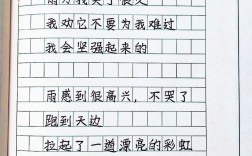 雨为我哭了很久
我劝它不要为我难过
我会坚强起来的
雨感到很高兴，不哭了
跑到天边
拉起了一道漂亮的彩虹